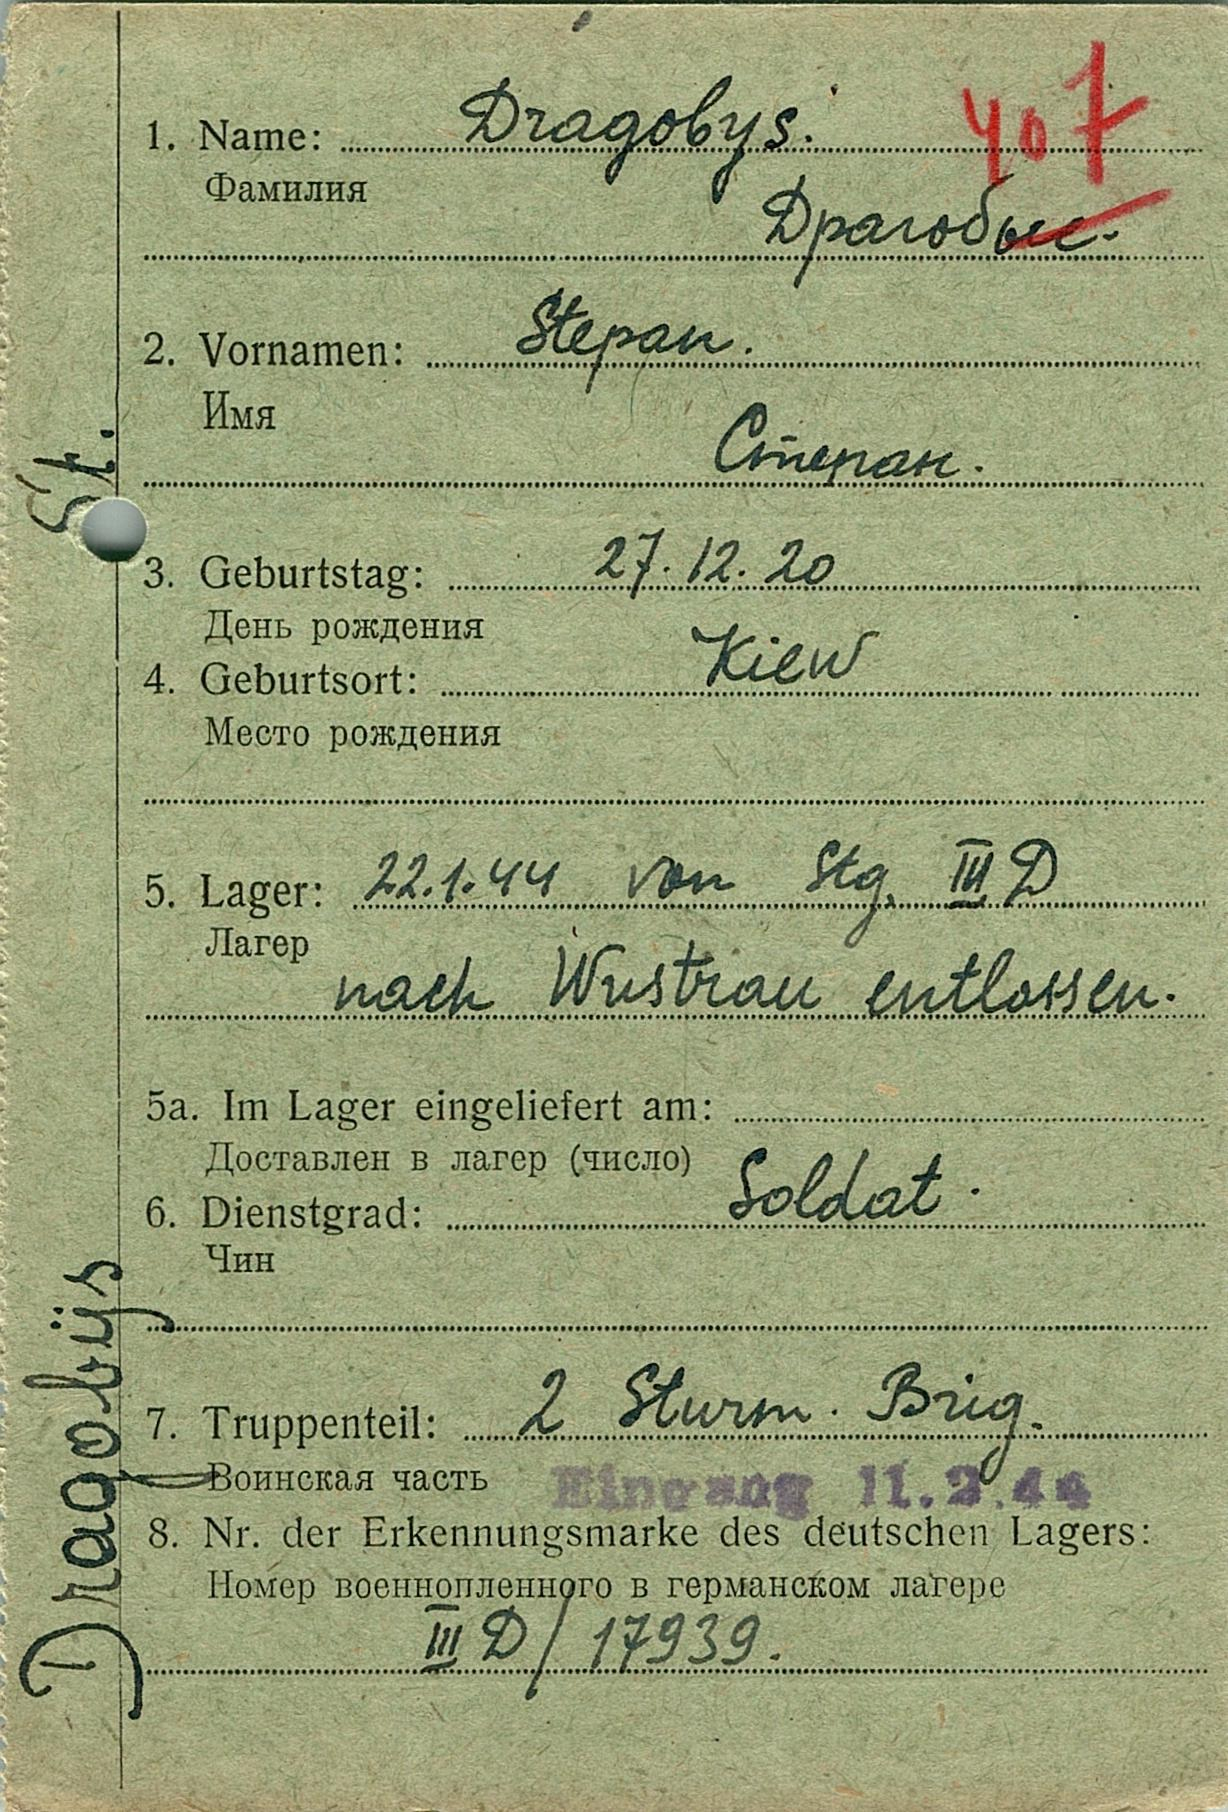 407
1. Name: Dragobys.
Фамилия
Драгобыс.
2. Vornamen: Stepan.
Имя
Степан.
3. Geburtstag: 27.12.20
День рождения
4. Geburtsort: Kiew
Место рождения
5. Lager: 22.1.44 von Stg. III D
Лагер
nach Wustrau entlassen.
5a. Im Lager eingeliefert am:
Доставлен в лагер (число)
6. Dienstgrad: Soldat.
Чин
7. Truppenteil: 2 Sturm. Brig.
Воинская часть
Eingang 11.2.44
8. Nr. der Erkennungsmarke des deutschen Lagers:
Номер военнопленного в германском лагере
III D/17939.
Dragobÿs St.